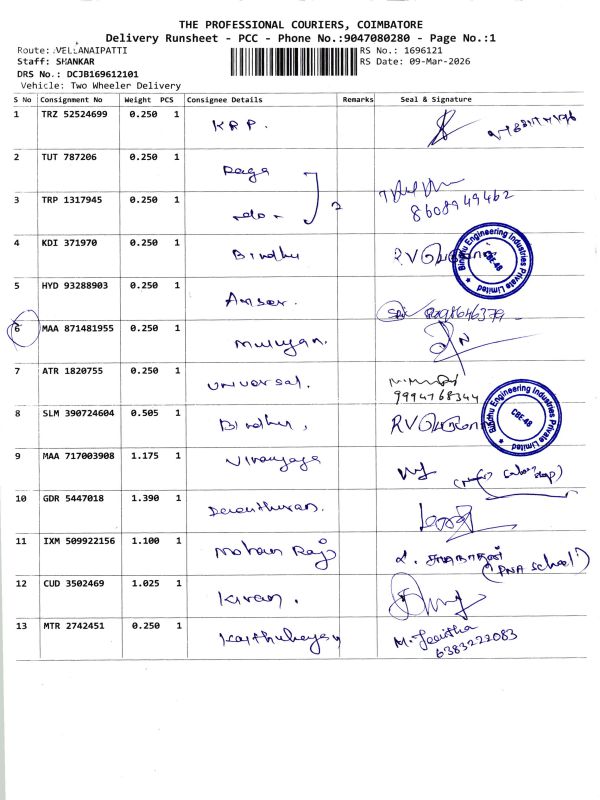 THE PROFESSIONAL COURIERS, COIMBATORE
Delivery Runsheet - PCC - Phone No.:9047080280 - Page No.:1
Route: VELLANAIPATTI
RS No.: 1696121
Staff: SHANKAR
RS Date: 09-Mar-2026
DRS No.: DCJB169612101
Vehicle: Two Wheeler Delivery
S No Consignment No Weight PCS Consignee Details Remarks Seal & Signature
1 TRZ 52524699 0.250 1 KRP.
2 TUT 787206 0.250 1 Raga
3 TRP 1317945 0.250 1 -do- 2
8608949462
4 KDI 371970 0.250 1 Bindhu RV
Bindhu Engineering Industries Private Limited CBE-48
5 HYD 93288903 0.250 1 Anser.
6 MAA 871481955 0.250 1 Murugan.
7 ATR 1820755 0.250 1 Universal.
9994768344
8 SLM 390724604 0.505 1 Bindhu, RV
Bindhu Engineering Industries Private Limited CBE-48
9 MAA 717003908 1.175 1 Vinayaga
10 GDR 5447018 1.390 1
11 IXM 509922156 1.100 1 Mohan Raj
(PNA School)
12 CUD 3502469 1.025 1 Kiran.
13 MTR 2742451 0.250 1 Karthikeyan M. Jeevitha
6383222083